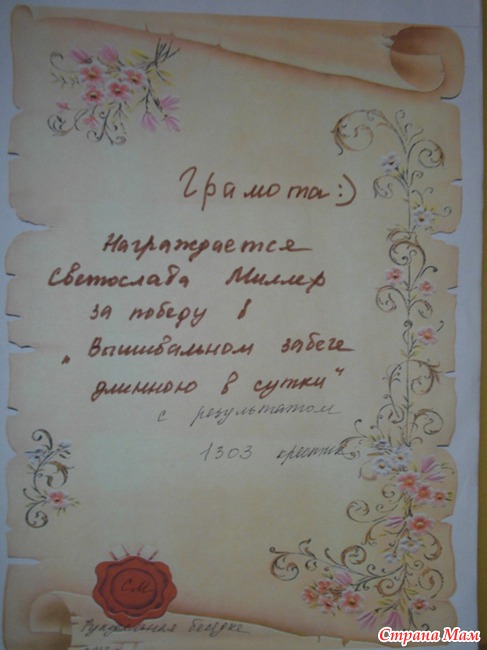 Грамота:)
Награждается
Светослава Миллер
за победу в
„Вышивальном забеге
длинною в сутки"
с результатом
1303 крестика
СМ
Рукодельная беседка
Страна Мам